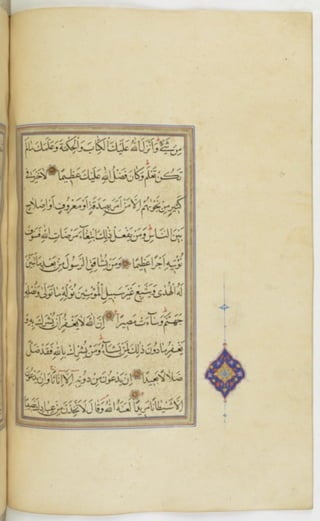 مِنْ شَيْءٍ وَأَنْزَلَ اللَّهُ عَلَيْكَ الْكِتَابَ وَالْحِكْمَةَ وَعَلَّمَكَ مَا لَمْ
تَكُنْ تَعْلَمُ وَكَانَ فَضْلُ اللَّهِ عَلَيْكَ عَظِيمًا لَا خَيْرَ فِي
كَثِيرٍ مِنْ نَجْوَاهُمْ إِلَّا مَنْ أَمَرَ بِصَدَقَةٍ أَوْ مَعْرُوفٍ أَوْ إِصْلَاحٍ
بَيْنَ النَّاسِ وَمَنْ يَفْعَلْ ذَلِكَ ابْتِغَاءَ مَرْضَاتِ اللَّهِ فَسَوْفَ
نُؤْتِيهِ أَجْرًا عَظِيمًا وَمَنْ يُشَاقِقِ الرَّسُولَ مِنْ بَعْدِ مَا تَبَيَّنَ
لَهُ الْهُدَى وَيَتَّبِعْ غَيْرَ سَبِيلِ الْمُؤْمِنِينَ نُوَلِّهِ مَا تَوَلَّى وَنُصْلِهِ
جَهَنَّمَ وَسَاءَتْ مَصِيرًا إِنَّ اللَّهَ لَا يَغْفِرُ أَنْ يُشْرَكَ بِهِ وَ
يَغْفِرُ مَا دُونَ ذَلِكَ لِمَنْ يَشَاءُ وَمَنْ يُشْرِكْ بِاللَّهِ فَقَدْ ضَلَّ
ضَلَالًا بَعِيدًا إِنْ يَدْعُونَ مِنْ دُونِهِ إِلَّا إِنَاثًا وَإِنْ يَدْعُونَ
إِلَّا شَيْطَانًا مَرِيدًا لَعَنَهُ اللَّهُ وَقَالَ لَأَتَّخِذَنَّ مِنْ عِبَادِكَ نَصِيبًا